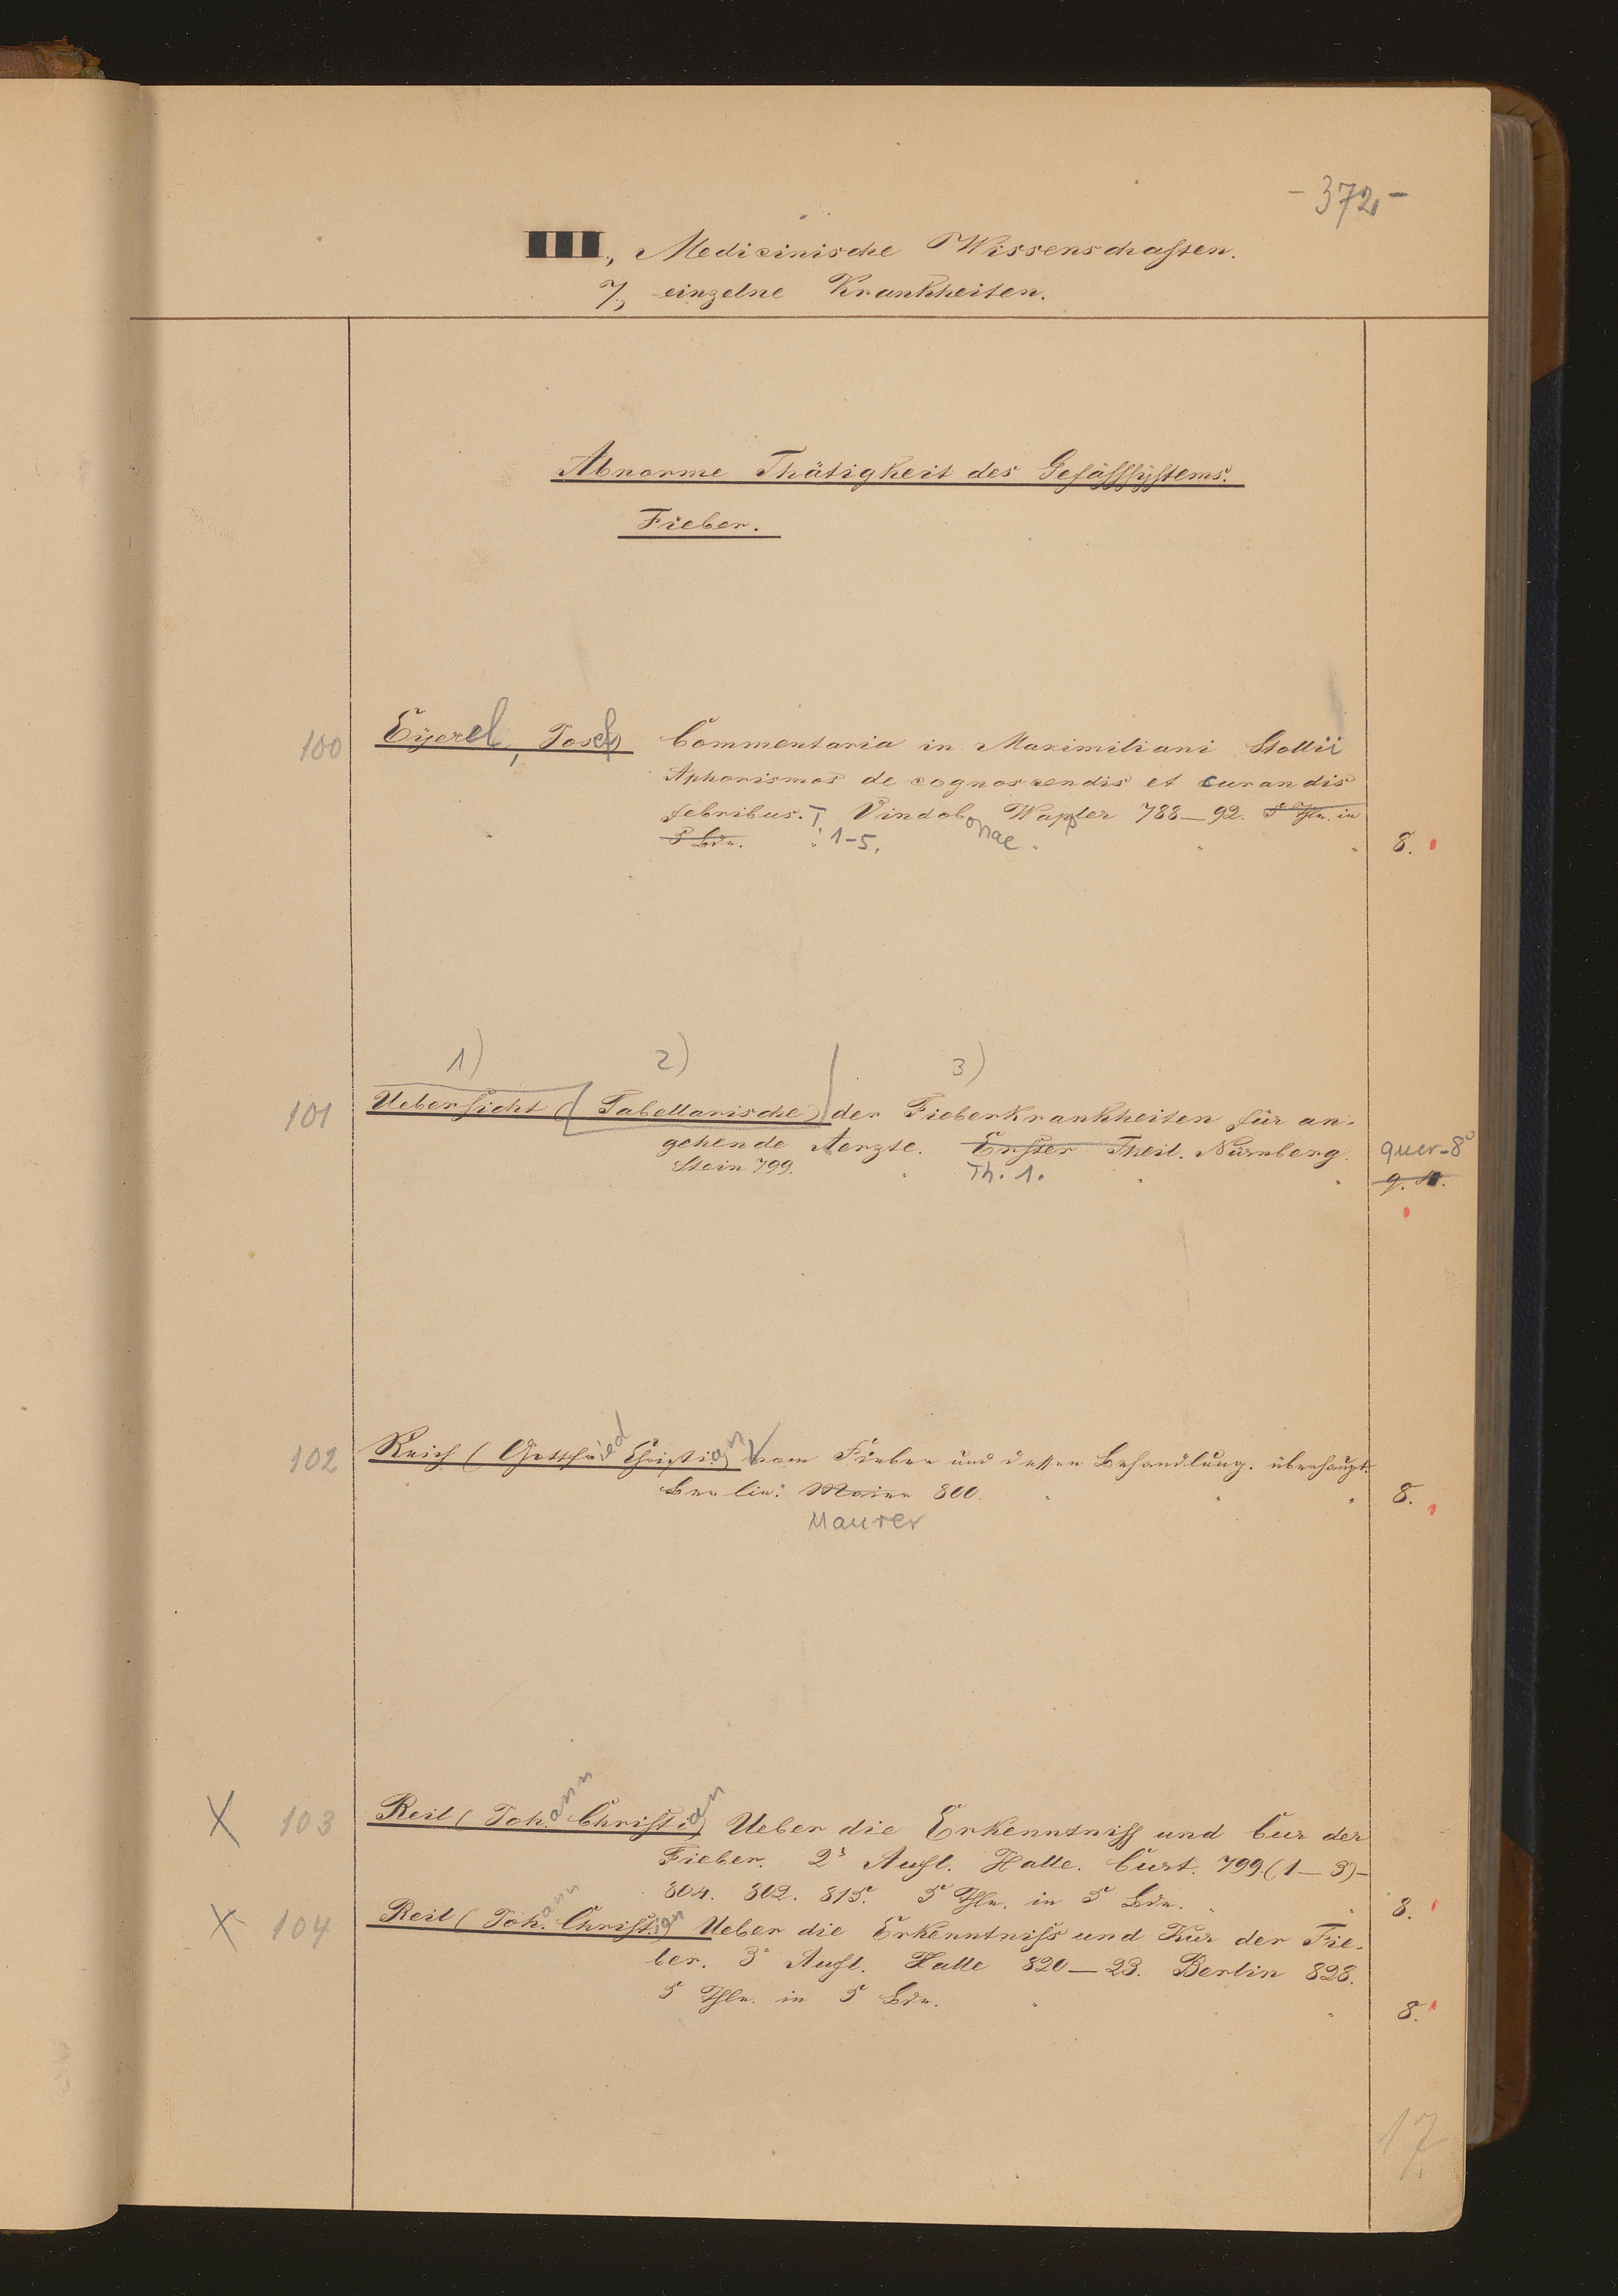 - 372 -
III, Medicinische Wissenschaften.
7, einzelne Krankheiten.
Abnorme Thätigkeit des Gefäßsÿstems.
Fieber.
100 Eÿerel, Josef Commentaria in Maximiliani Stollii
Aphorismos de cognoscendis et curandis
febribus. T. Vindobonae Wappler 788–92. 5 Thle. in
5 Bdn. 1-5. 8.
1) 2) 3)
101 Uebersicht (Tabellarische) der Fieberkrankheiten für an-
gehende Aerzte. Erster Theil. Nürnberg. quer-8°
Stein 799. Th. 1. q. 4.
102 Reich (Gottfried Christian) Vom Fieber und dessen Behandlung. überhaupt.
Berlin: Maier 800. 8.
Maurer
X 103 Reil (Johann Christian) Ueber die Erkenntniß und Cur der
Fieber. 2e Aufl. Halle. Curt. 799 (1–3)–
804. 802. 815. 5 Thle. in 5 Bdn. 8.
X 104 Reil (Johann Christian) Ueber die Erkenntniß und Kur der Fie-
ber. 3e Aufl. Halle 820–23. Berlin 828.
5 Thle. in 5 Bdn. 8.
17